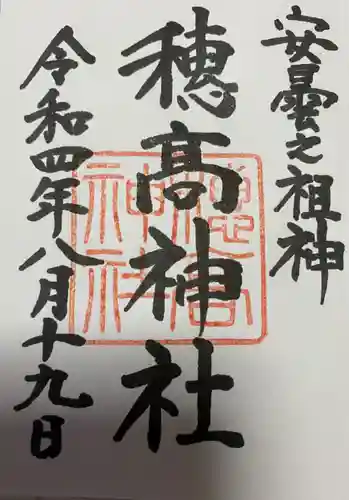 安曇之祖神
穂高神社
穂高神社
令和四年八月十九日